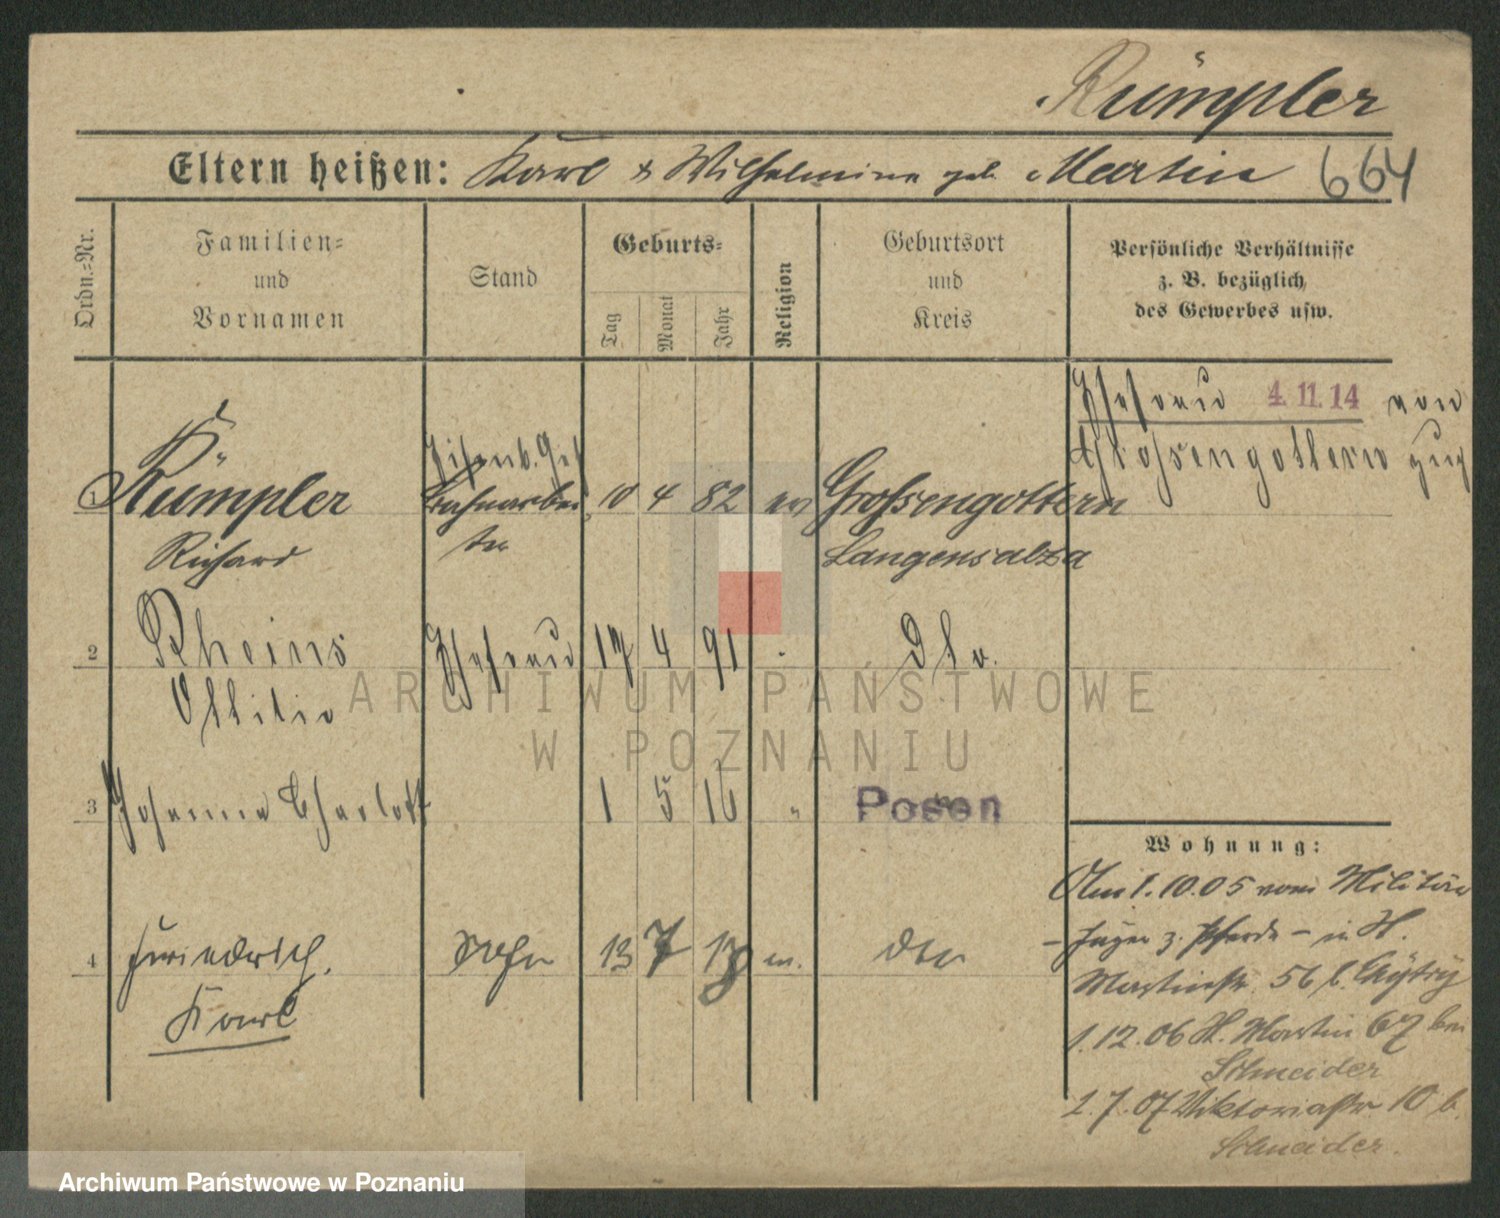 Rümpler
Eltern heißen: Karl & Wilhelmine geb. Martin 664
Ordn.=Nr.
Familien=
und
Vornamen
Stand
Geburts=
Tag
Monat
Jahr
Religion
Geburtsort
und
Kreis
Persönliche Verhältnisse
z. B. bezüglich
des Gewerbes usw.
Ehefrau 4.11.14 von
Grossengottern zug
1 Rümpler Eisenb. Geh Bahnarbei 10 4 82 ev Grossengottern
Richard ter Langensalza
2 Rheins Ehefrau 17 4 91 Dto.
Ottilie
3 Johanna Charlott 1 5 16 " Posen
4 Friedrich Sohn 13 7 18 ev. dto
Karl
Wohnung:
Am 1.10.05 vom Militär
- Jäger z. Pferde - in H.
Martinstr. 56 b.
1.12.06 H. Martin 67 bei
Schneider
2.7.07 Viktoriastr 10 b.
Schneider.
ARCHIWUM PAŃSTWOWE
W POZNANIU
Archiwum Państwowe w Poznaniu